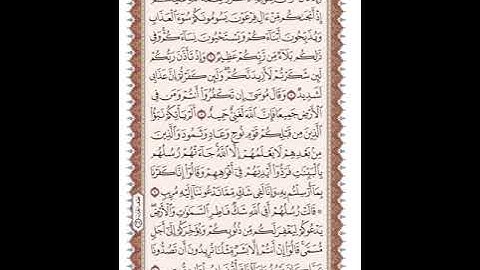 إِذْ أَنجَىٰكُم مِّنْ ءَالِ فِرْعَوْنَ يَسُومُونَكُمْ سُوٓءَ ٱلْعَذَابِ
وَيُذَبِّحُونَ أَبْنَآءَكُمْ وَيَسْتَحْيُونَ نِسَآءَكُمْ وَفِي
ذَٰلِكُم بَلَآءٌ مِّن رَّبِّكُمْ عَظِيمٌ ۝ وَإِذْ تَأَذَّنَ رَبُّكُمْ
لَئِن شَكَرْتُمْ لَأَزِيدَنَّكُمْ وَلَئِن كَفَرْتُمْ إِنَّ عَذَابِي
لَشَدِيدٌ ۝ وَقَالَ مُوسَىٰٓ إِن تَكْفُرُوٓا۟ أَنتُمْ وَمَن فِي
ٱلْأَرْضِ جَمِيعًا فَإِنَّ ٱللَّهَ لَغَنِيٌّ حَمِيدٌ ۝ أَلَمْ يَأْتِكُمْ نَبَؤُا۟
ٱلَّذِينَ مِن قَبْلِكُمْ قَوْمِ نُوحٍ وَعَادٍ وَثَمُودَ وَٱلَّذِينَ
مِنۢ بَعْدِهِمْ لَا يَعْلَمُهُمْ إِلَّا ٱللَّهُ جَآءَتْهُمْ رُسُلُهُم
بِٱلْبَيِّنَٰتِ فَرَدُّوٓا۟ أَيْدِيَهُمْ فِيٓ أَفْوَٰهِهِمْ وَقَالُوٓا۟ إِنَّا كَفَرْنَا
بِمَآ أُرْسِلْتُم بِهِۦ وَإِنَّا لَفِي شَكٍّ مِّمَّا تَدْعُونَنَآ إِلَيْهِ مُرِيبٍ ۝
۞ قَالَتْ رُسُلُهُمْ أَفِي ٱللَّهِ شَكٌّ فَاطِرِ ٱلسَّمَٰوَٰتِ وَٱلْأَرْضِ
يَدْعُوكُمْ لِيَغْفِرَ لَكُم مِّن ذُنُوبِكُمْ وَيُؤَخِّرَكُمْ إِلَىٰٓ أَجَلٍ
مُّسَمًّى قَالُوٓا۟ إِنْ أَنتُمْ إِلَّا بَشَرٌ مِّثْلُنَا تُرِيدُونَ أَن تَصُدُّونَا